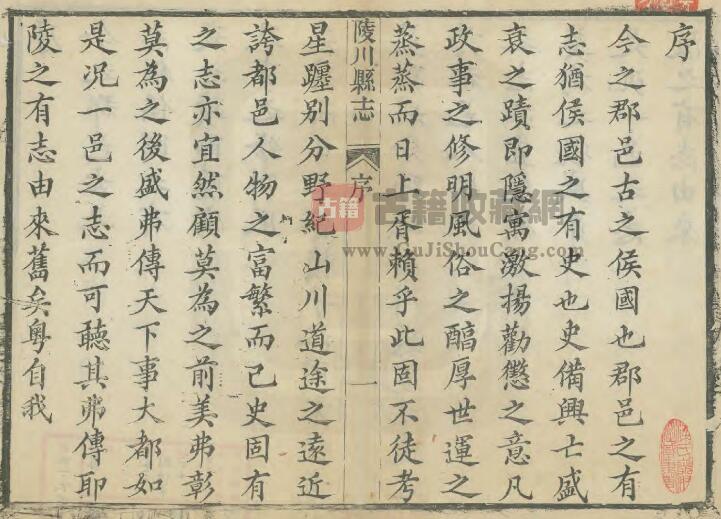 序
今之郡邑古之侯國也郡邑之有
志猶侯國之有史也史備興亡盛
衰之蹟即隱寓激揚勸懲之意凡
政事之修明風俗之醕厚世運之
蒸蒸而日上胥賴乎此固不徒考
陵川縣志
序
一
星躔別分野紀山川道途之遠近
誇都邑人物之富繁而已史固有
之志亦宜然顧莫為之前美弗彰
莫為之後盛弗傳天下事大都如
是况一邑之志而可聽其弗傳耶
陵之有志由來舊矣粤自我
古籍
古籍收藏網
www.GuJiShouCang.com